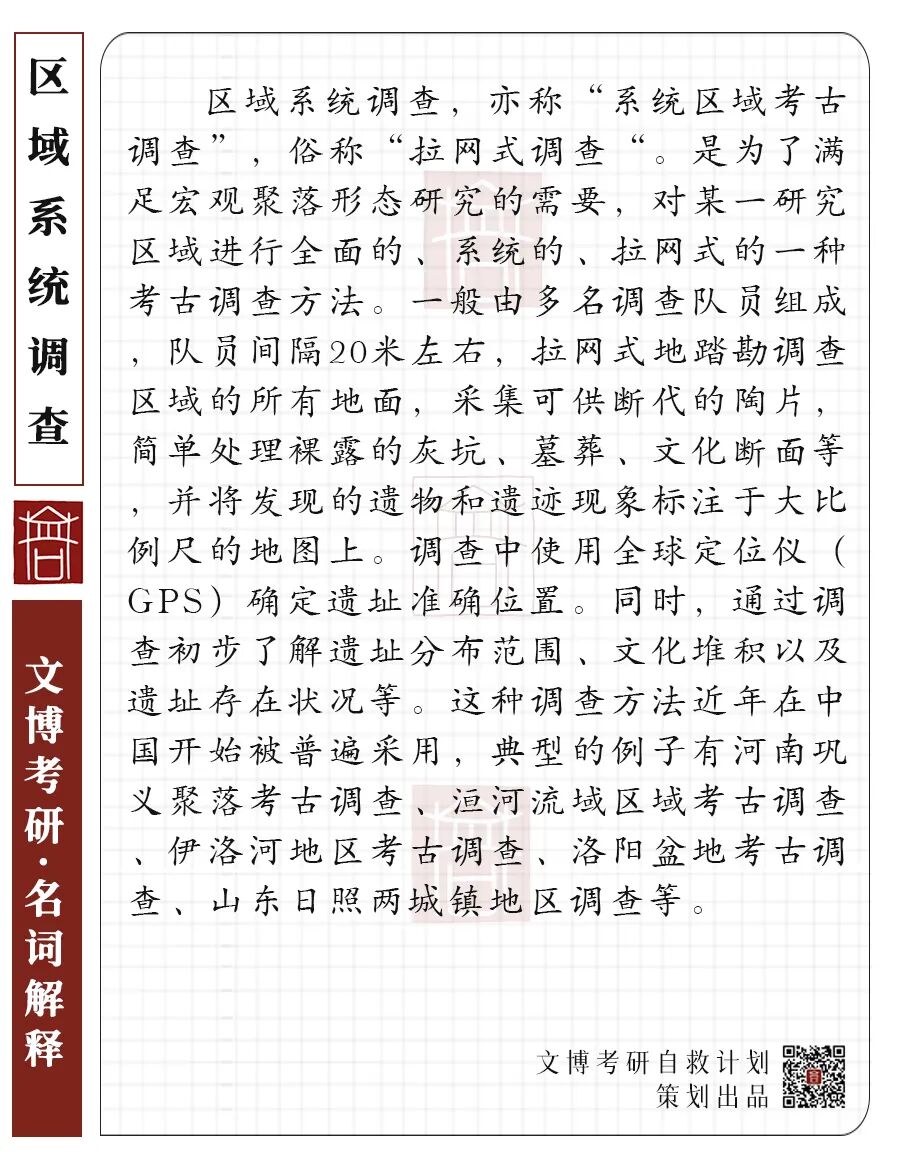 区域系统调查
文博考研·名词解释
区域系统调查，亦称“系统区域考古
调查”，俗称“拉网式调查“。是为了满
足宏观聚落形态研究的需要，对某一研究
区域进行全面的、系统的、拉网式的一种
考古调查方法。一般由多名调查队员组成
，队员间隔20米左右，拉网式地踏勘调查
区域的所有地面，采集可供断代的陶片，
简单处理裸露的灰坑、墓葬、文化断面等
，并将发现的遗物和遗迹现象标注于大比
例尺的地图上。调查中使用全球定位仪（
GPS）确定遗址准确位置。同时，通过调
查初步了解遗址分布范围、文化堆积以及
遗址存在状况等。这种调查方法近年在中
国开始被普遍采用，典型的例子有河南巩
义聚落考古调查、洹河流域区域考古调查
、伊洛河地区考古调查、洛阳盆地考古调
查、山东日照两城镇地区调查等。
文博考研自救计划
策划出品